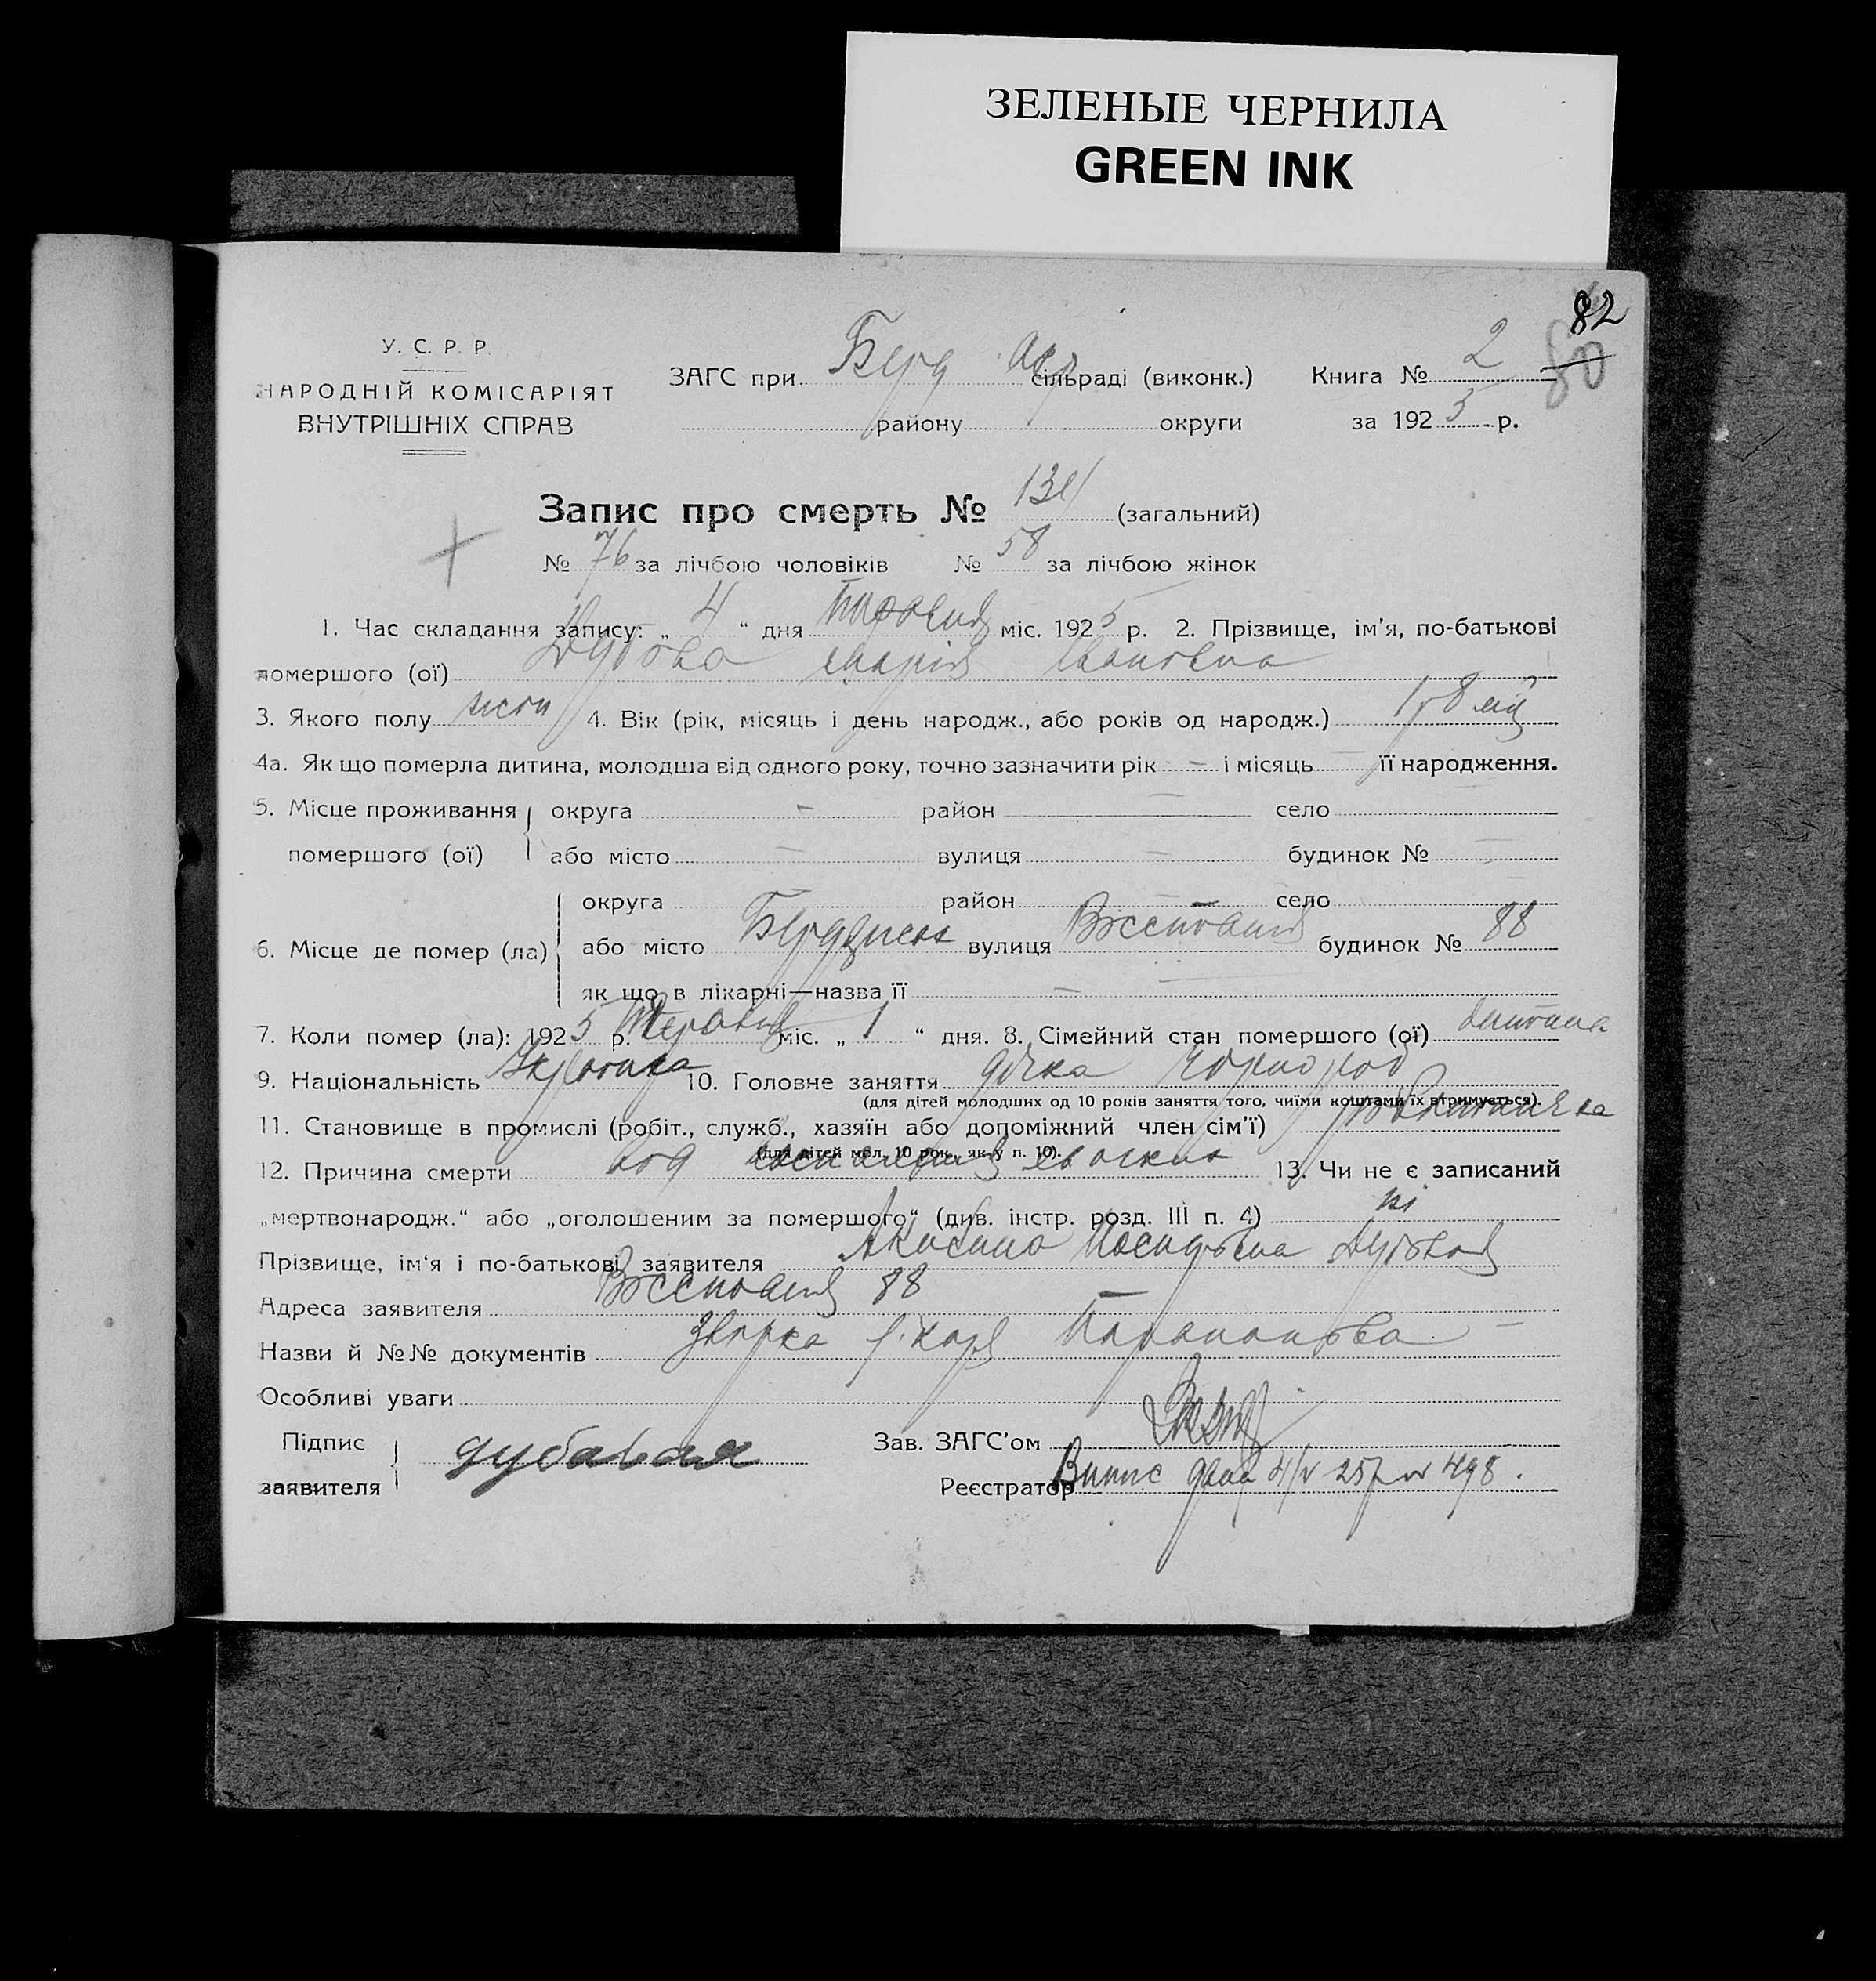 ЗЕЛЕНЫЕ ЧЕРНИЛА
GREEN INK
82
80
У. С. Р. Р.
НАРОДНІЙ КОМІСАРІЯТ
ВНУТРІШНІХ СПРАВ
ЗАГС при Берд сільраді (виконк.)
району округи
Книга № 2
за 1925 р.
Запис про смерть № 134 (загальний)
№ 76 за лічбою чоловіків № 58 за лічбою жінок
1. Час складання запису: „ 4 “ дня міс. 1925 р. 2. Прізвище, ім'я, по-батькові
помершого (ої) Дубова Марія Івановна
3. Якого полу 4. Вік (рік, місяць і день народж., або років од народж.) 1 р 8 міс
4а. Як що померла дитина, молодша від одного року, точно зазначити рік – і місяць її народження.
5. Місце проживання округа – район — село
помершого (ої) або місто – вулиця – будинок №
округа район – село
6. Місце де помер (ла) або місто Бердянськ вулиця будинок № 88
як що в лікарні—назва її –
7. Коли помер (ла): 1925 р. Червня міс. „ 1 “ дня. 8. Сімейний стан помершого (ої) дитина
9. Національність Українка 10. Головне заняття дочка чорнороб
(для дітей молодших од 10 років заняття того, чиїми коштами їх втримується).
11. Становище в промислі (робіт., служб., хазяїн або допоміжний член сім'ї)
(для дітей мол. 10 рок., як у п. 10).
12. Причина смерти од 13. Чи не є записаний
„мертвонародж.“ або „оголошеним за помершого“ (див. інстр. розд. III п. 4) ні
Прізвище, ім'я і по-батькові заявителя Дубова
Адреса заявителя 88
Назви й №№ документів
Особливі уваги
Підпис
заявителя
дубавая
Зав. ЗАГС'ом
Реєстратор Випис 4/V 25р № 498.